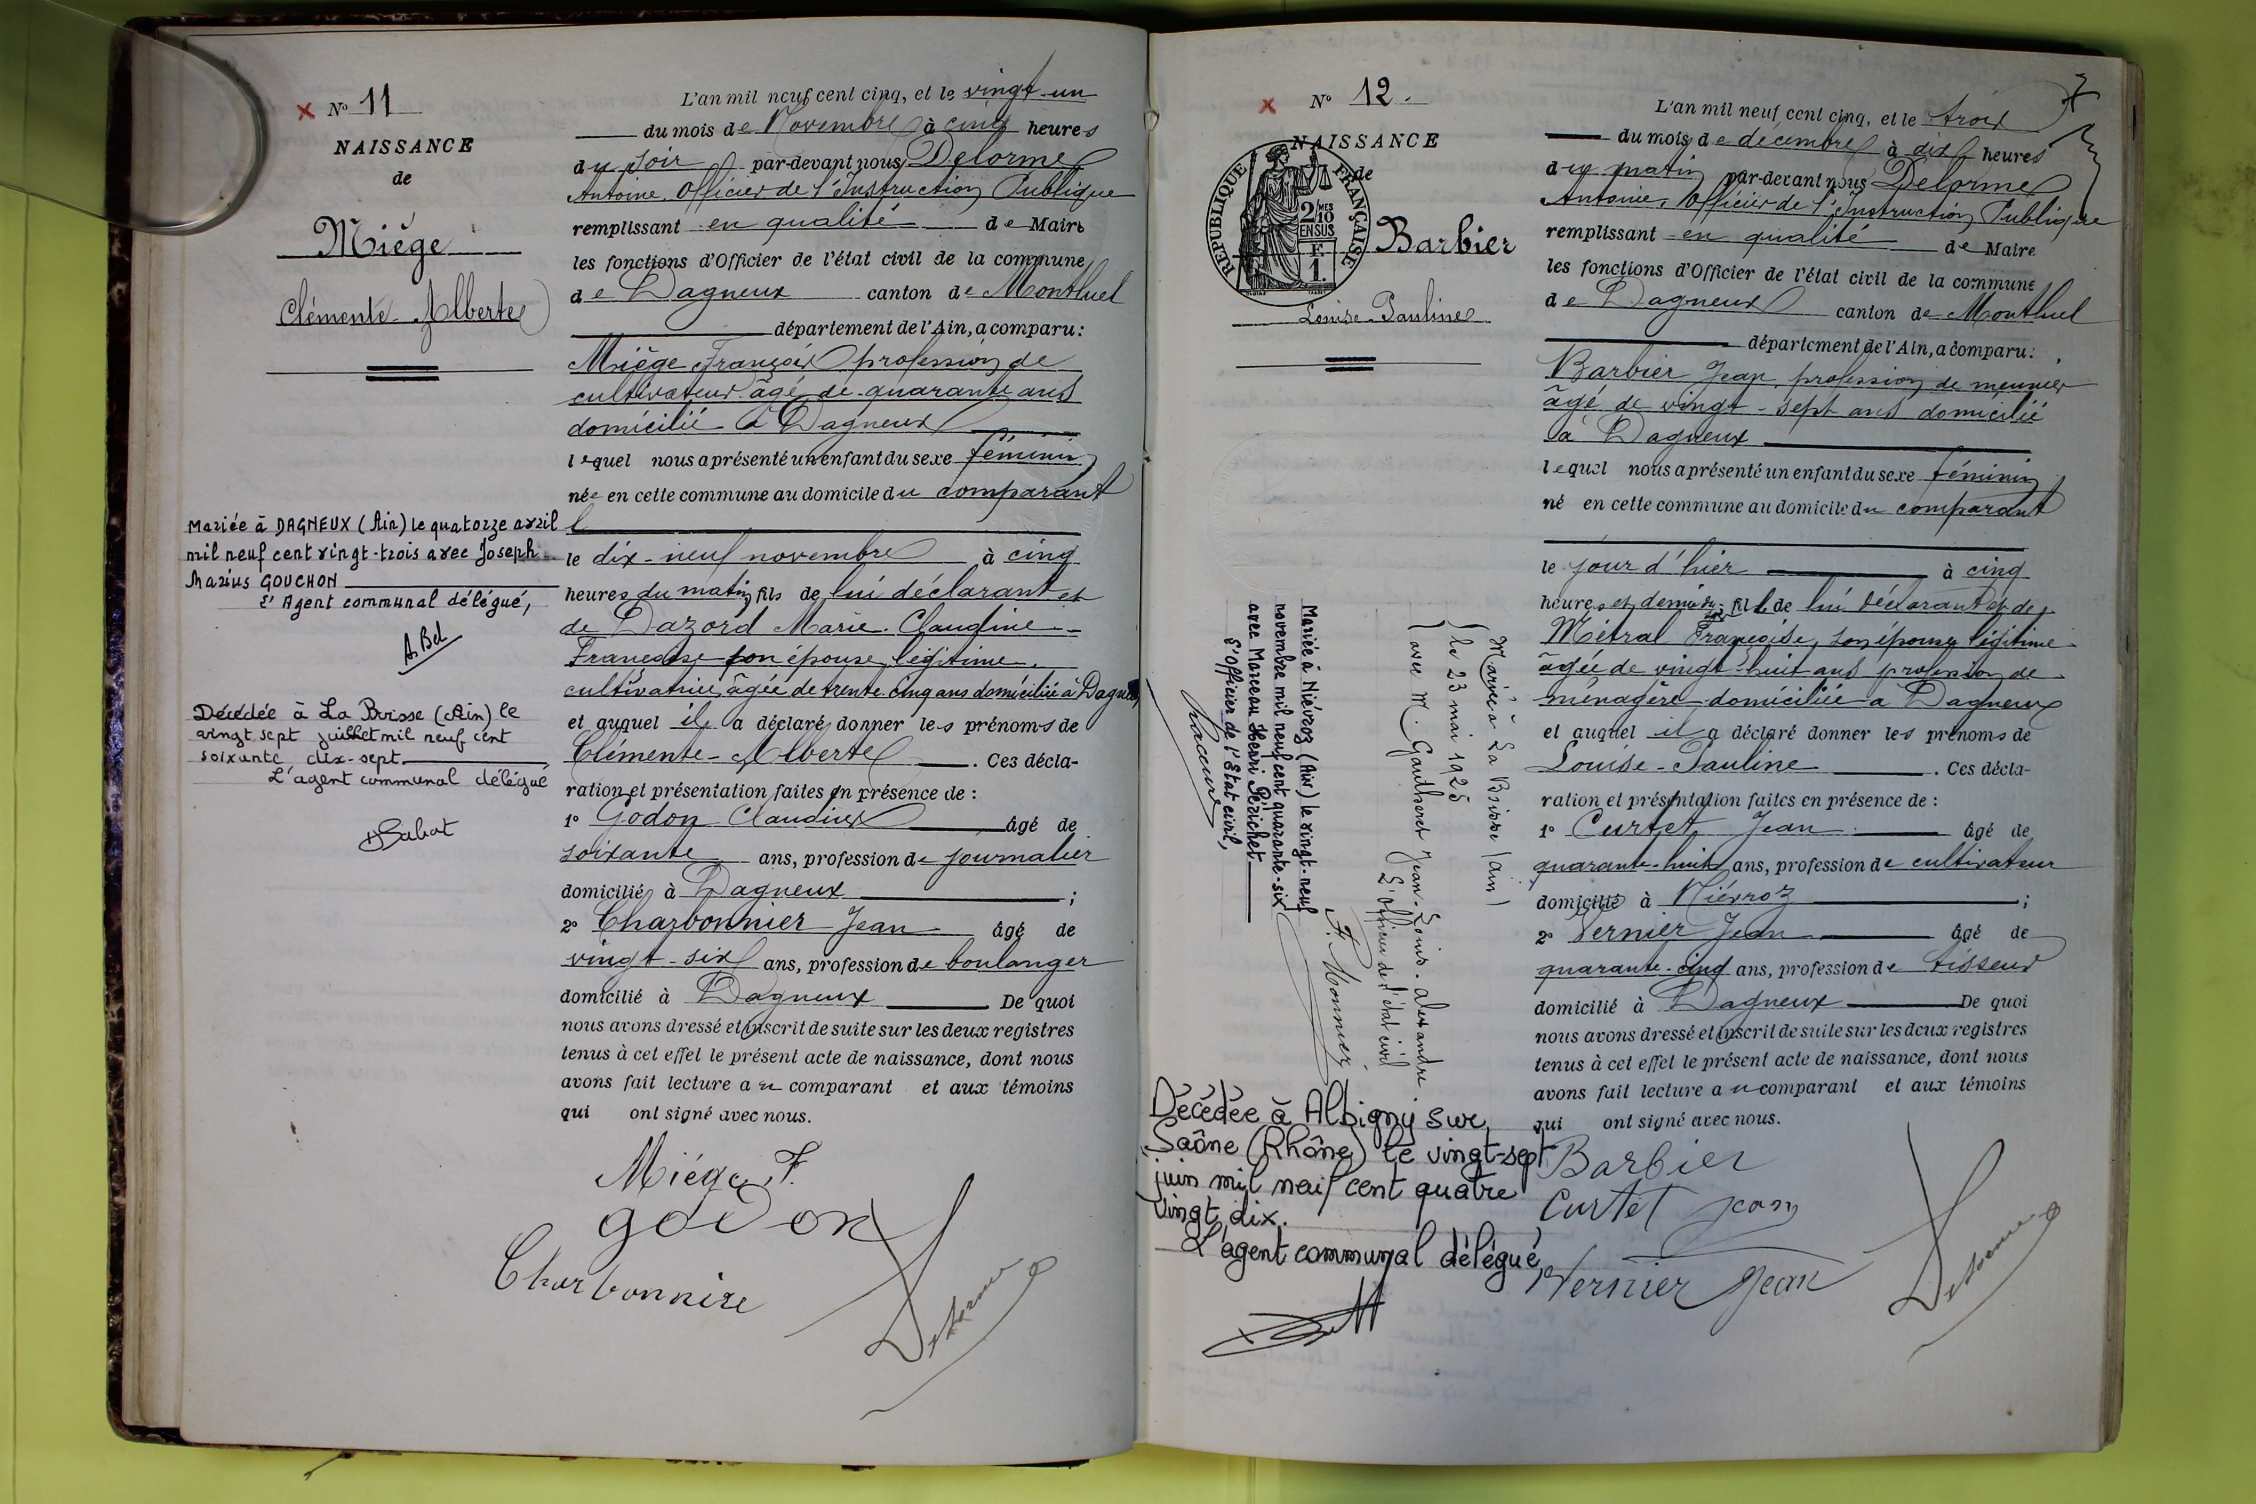 N° 11
NAISSANCE
de
Miège
Clémente Alberte
Mariée à DAGNEUX (Ain) le quatorze avril
mil neuf cent vingt-trois avec Joseph
Marius GOUCHON
L'Agent communal délégué,
A. Bel
Décédée à La Boisse (Ain) le
vingt sept juillet mil neuf cent
soixante dix-sept.
L'agent communal délégué
Sabot
L'an mil neuf cent cinq, et le vingt-un
du mois de Novembre à cinq heures
du soir par-devant nous Delorme
Antoine, Officier de l'Instruction Publique
remplissant en qualité de Maire
les fonctions d'Officier de l'état civil de la commune
de Dagneux canton de Montluel
département de l'Ain, a comparu:
Miège François profession de
cultivateur âgé de quarante ans
domicilié à Dagneux
lequel nous a présenté un enfant du sexe féminin
née en cette commune au domicile du comparant
le dix-neuf novembre à cinq
heures du matin fils de lui déclarant et
de Dazord Marie Claudine
Françoise son épouse légitime
cultivatrice, âgée de trente cinq ans domiciliée à Dagneux,
et auquel il a déclaré donner les prénoms de
Clémente-Alberte. Ces décla-
ration et présentation faites en présence de :
1° Godon Claudius âgé de
soixante ans, profession de journalier
domicilié à Dagneux ;
2° Charbonnier Jean âgé de
vingt-six ans, profession de boulanger
domicilié à Dagneux De quoi
nous avons dressé et inscrit de suite sur les deux registres
tenus à cet effet le présent acte de naissance, dont nous
avons fait lecture au comparant et aux témoins
qui ont signé avec nous.
Miége F.
godon
Charbonnire
Delorme
7
N° 12.
NAISSANCE
de
REPUBLIQUE FRANÇAISE
2/10 MES
EN SUS
F.
1.
Barbier
Louise-Pauline
Mariée à La Boisse (Ain)
le 23 mai 1925
avec M. Gautheret Jean-Louis-Alexandre.
L'officier de l'état civil
F. Monnier
Mariée à Niévroz (Ain) le vingt-neuf
novembre mil neuf cent quarante-six
avec Marceau Henri Périchet
L'Officier de l'Etat civil,
Décédée à Albigny sur
Saône (Rhône) le vingt-sept
juin mil neuf cent quatre
vingt dix.
L'agent communal délégué
L'an mil neuf cent cinq, et le trois
du mois de décembre à dix heures
du matin par-devant nous Delorme
Antoine, Officier de l'Instruction Publique
remplissant en qualité de Maire
les fonctions d'Officier de l'état civil de la commune
de Dagneux canton de Montluel
département de l'Ain, a comparu:
Barbier Jean profession de meunier
âgé de vingt-sept ans domicilié
à Dagneux
lequel nous a présenté un enfant du sexe féminin
né en cette commune au domicile du comparant
le jour d'hier à cinq
heures et demie du fille de lui déclarant et de
Métral Françoise, son épouse légitime
âgée de vingt-huit ans profession de
ménagère domiciliée à Dagneux
et auquel il a déclaré donner les prénoms de
Louise-Pauline. Ces décla-
ration et présentation faites en présence de :
1° Curtet Jean âgé de
quarante-huit ans, profession de cultivateur
domicilié à Niévroz ;
2° Vernier Jean âgé de
quarante-cinq ans, profession de tisseur
domicilié à Dagneux De quoi
nous avons dressé et inscrit de suite sur les deux registres
tenus à cet effet le présent acte de naissance, dont nous
avons fait lecture au comparant et aux témoins
qui ont signé avec nous.
Barbier
Curtet Jean
Vernier Jean
Delorme